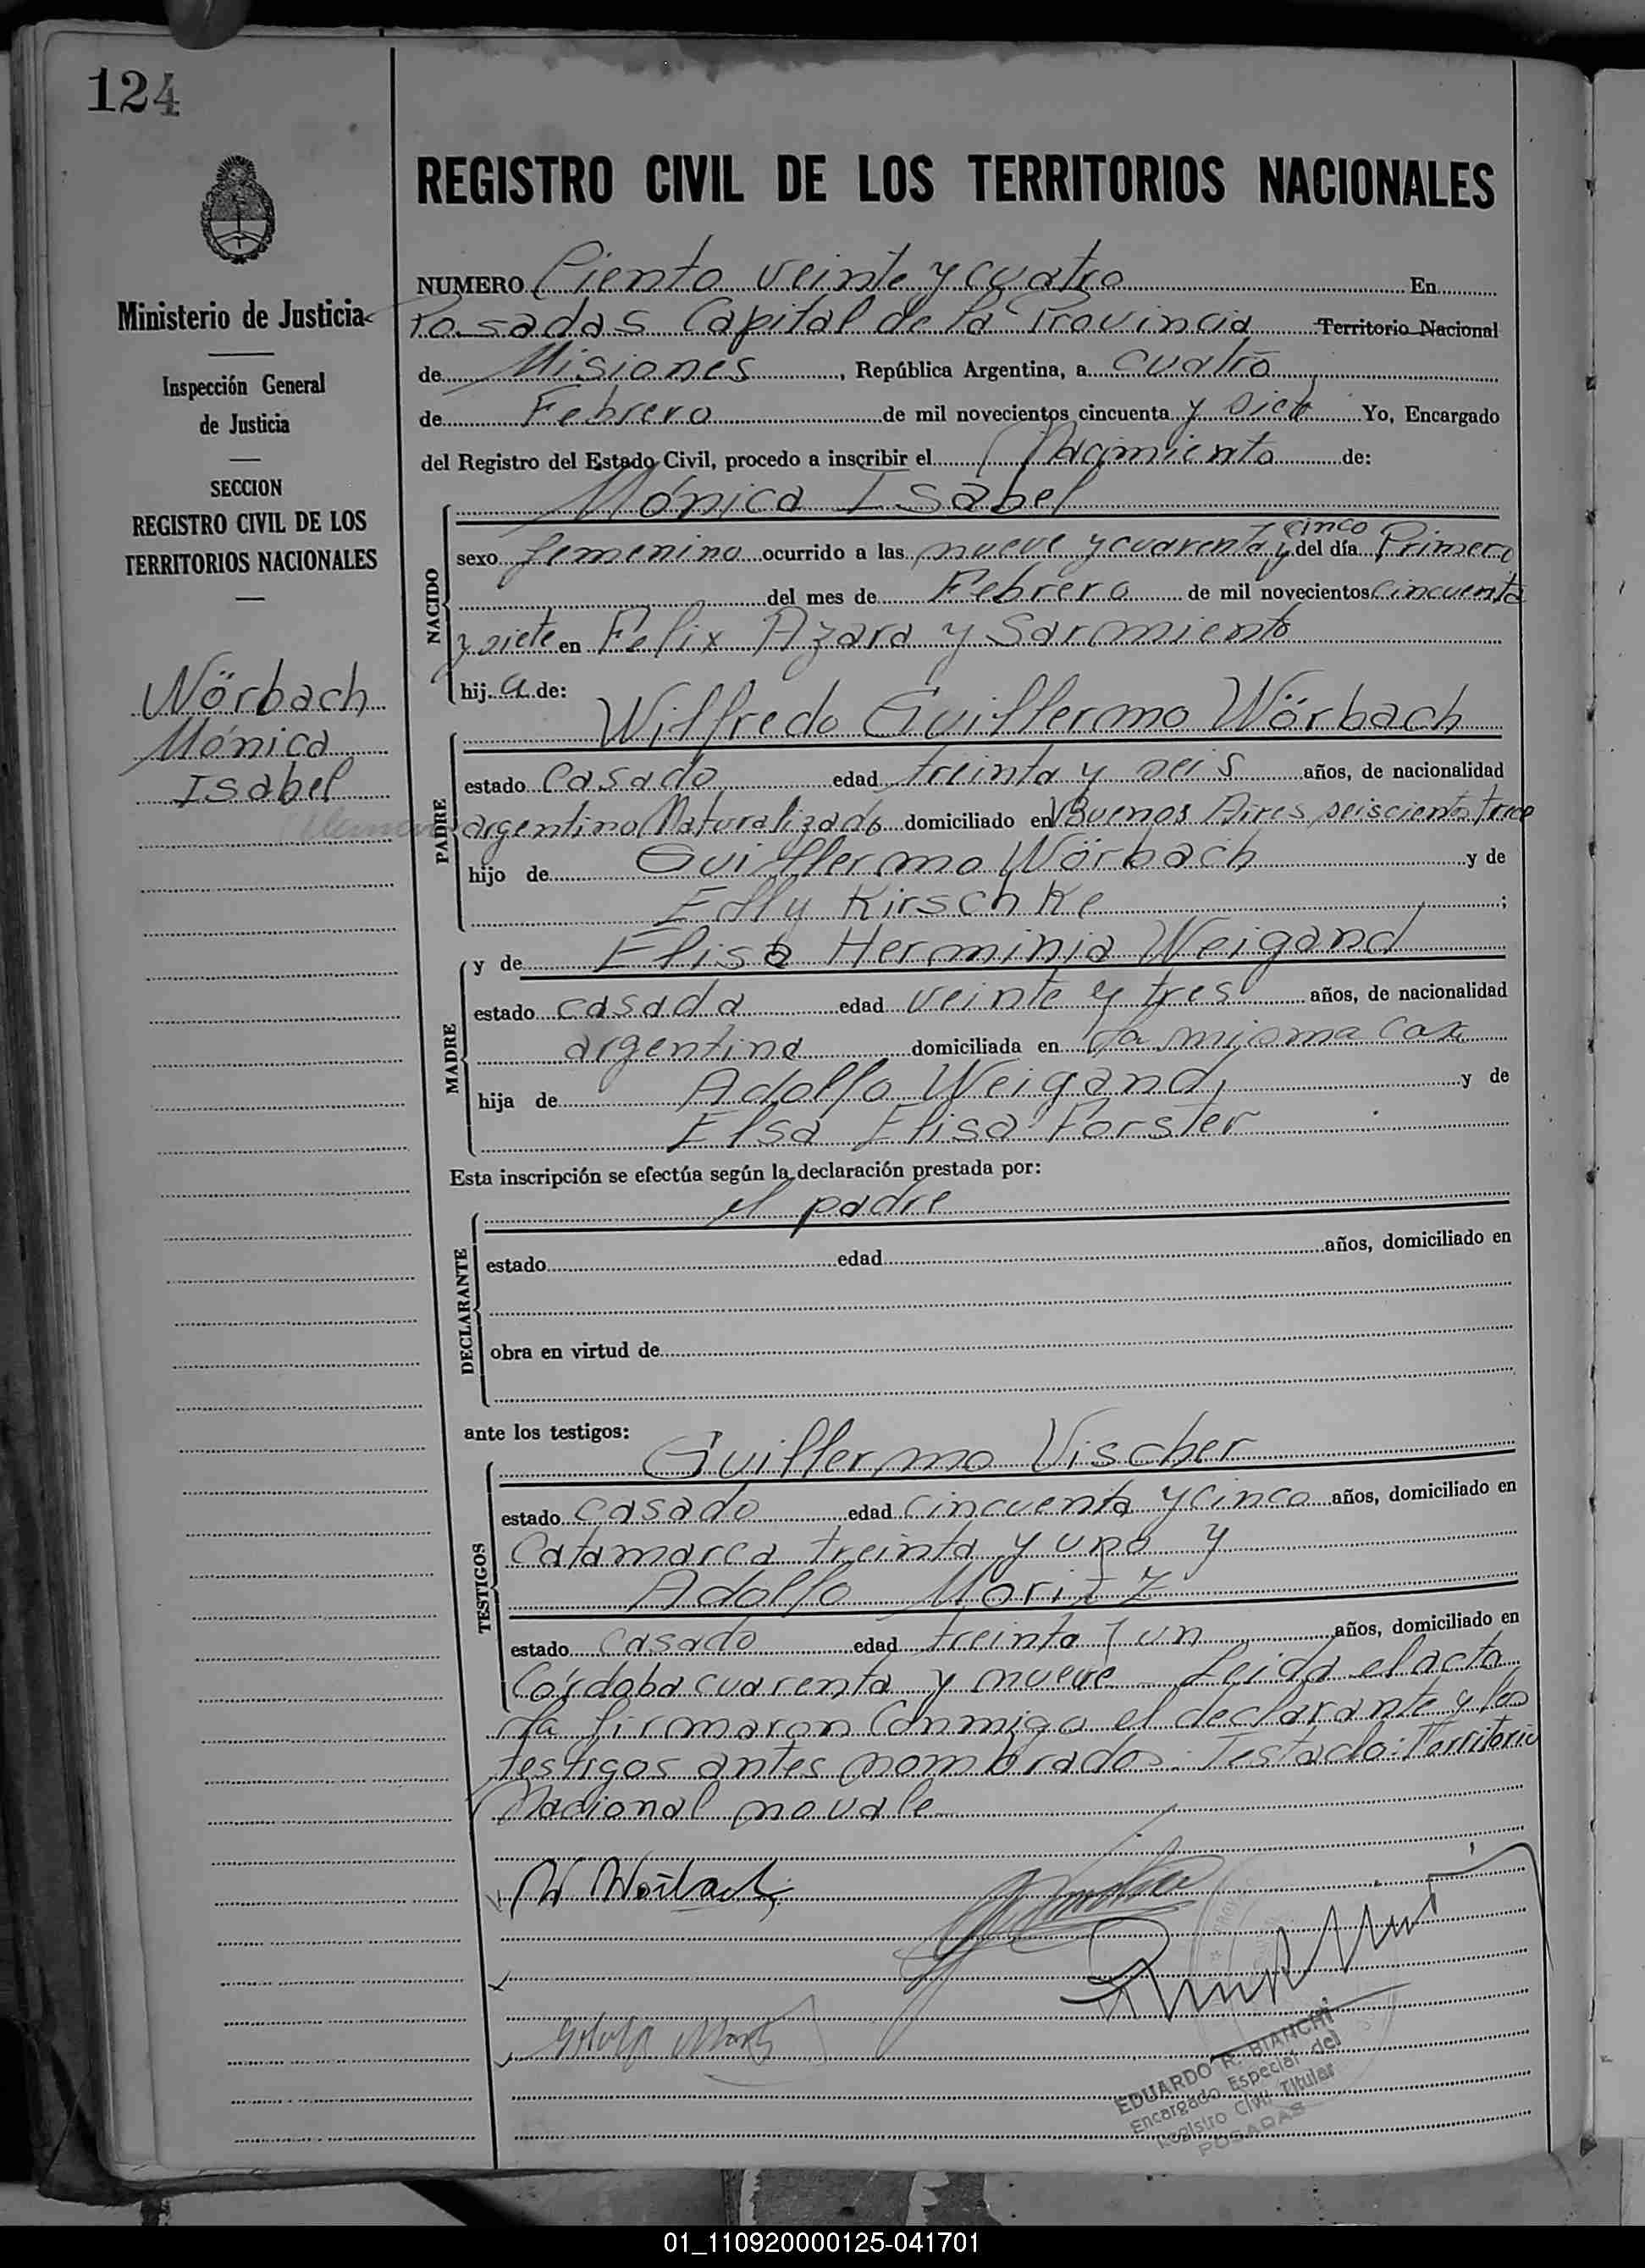 124
Ministerio de Justicia
Inspección General
de Justicia
SECCION
REGISTRO CIVIL DE LOS
TERRITORIOS NACIONALES
Wörbach
Mónica
Isabel
REGISTRO CIVIL DE LOS TERRITORIOS NACIONALES
NUMERO Ciento veinte y cuatro En
Posadas Capital de la Provincia Territorio Nacional
de Misiones, República Argentina, a cuatro
de Febrero de mil novecientos cincuenta y siete Yo, Encargado
del Registro del Estado Civil, procedo a inscribir el Nacimiento de:
Mónica Isabel
NACIDO
sexo femenino ocurrido a las nueve y cuarenta y cinco del día Primero
del mes de Febrero de mil novecientos cincuenta
y siete en Felix Azara y Sarmiento
hija de:
Wilfredo Guillermo Wörbach
PADRE
estado casado edad treinta y seis años, de nacionalidad
argentino Naturalizado domiciliado en Buenos Aires seiscientos trece
hijo de Guillermo Wörbach y de
Edly Kirschke;
y de Elisa Herminia Weigand
MADRE
estado casada edad veinte y tres años, de nacionalidad
argentina domiciliada en la misma casa
hija de Adolfo Weigand, y de
Elsa Elisa Forster
Esta inscripción se efectúa según la declaración prestada por:
el padre
DECLARANTE
estado edad años, domiciliado en
obra en virtud de
ante los testigos:
Guillermo Vischer
TESTIGOS
estado casado edad cincuenta y cinco años, domiciliado en
Catamarca treinta y uno y
Adolfo Moritz
estado casado edad treinta y un años, domiciliado en
Córdoba cuarenta y nueve Leida el acta
la firmaron conmigo el declarante y los
testigos antes nombrados. Testado: Territorio
Nacional no vale
W Wörbach
EDUARDO R. BIANCHI
Encargado Especial del
Registro Civil Titular
POSADAS
01_110920000125-041701